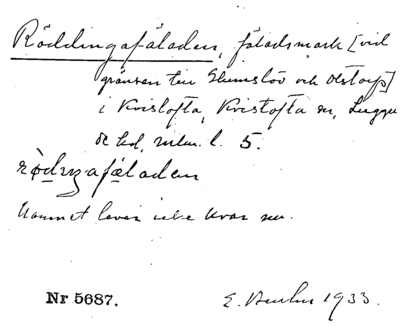 Röddingafäladen, fäladsmark [vid
gränsen till Glumslöv och Ottarp]
i Kvistofta, Kvistofta sn, Luggu
de hd, mlm. l. 5.
rödıŋafäladen
Namnet lever icke kvar nu.
Nr 5687. E. 1933.